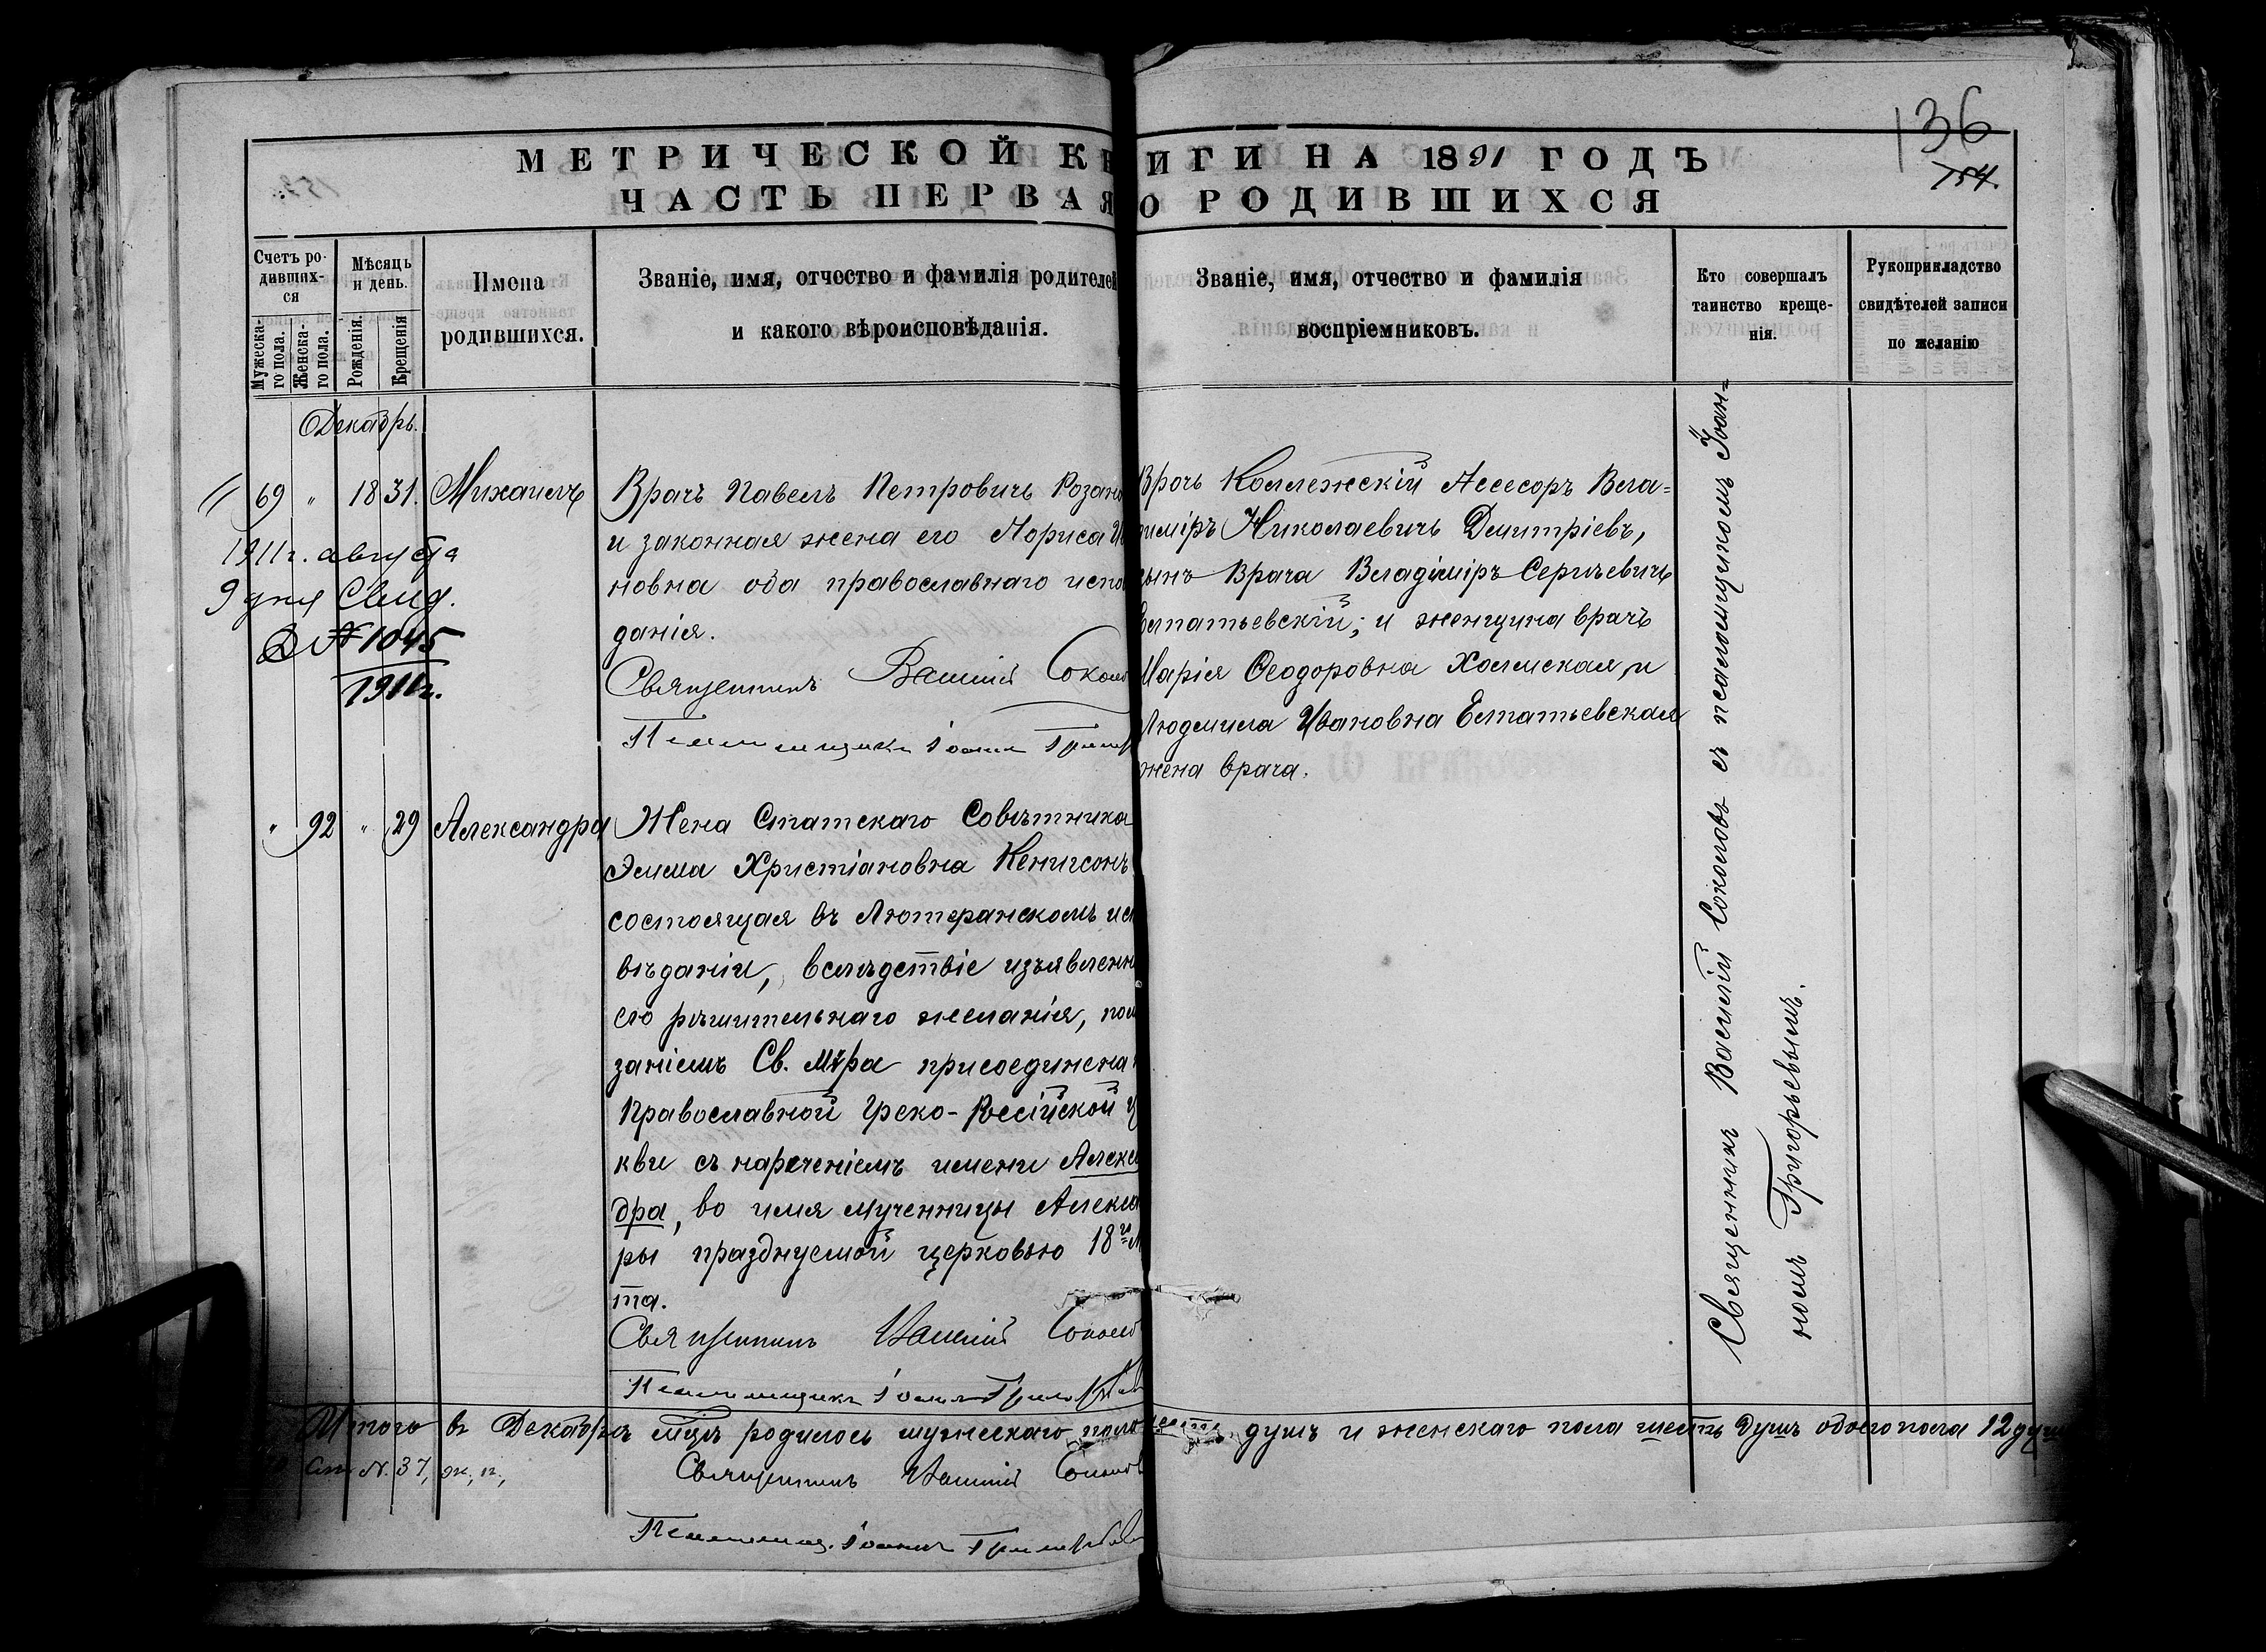 136
154.
МЕТРИЧЕСКОЙ КНИГИ НА 1891 ГОДЪ
ЧАСТЬ ПЕРВАЯ О РОДИВШИХСЯ
Счетъ ро-
дивших-
ся
Мужеска-
го пола.
Женска-
го пола.
Мѣсяцъ
и день.
Рожденія.
Крещенія
Имена
родившихся.
Званіе, имя, отчество и фамилія родителей
и какого вѣроисповѣданія.
Званіе, имя, отчество и фамилія
воспріемниковъ.
Кто совершалъ
таинство креще-
нія.
Рукоприкладство
свидѣтелей записи
по желанію
Декабрь.
69 " 18 31. Михаилъ
1911г. августа
9 дня Свид.
№ 1045
1911г.
Врачъ Павелъ Петровичъ Розано
и законная жена его Лариса И
новна оба православнаго испо
данія.
Священникъ Василій Соколо
Псаломщикъ Іоаннъ Григор
Врачъ Коллежскій Ассесоръ Вла=
диміръ Николаевичъ Дмитріевъ,
сынъ Врача Владиміръ Сергѣевичъ
Елпатьевскій; и женщина врачъ
Марія Ѳеодоровна Холмская, и
Людмила Ивановна Елпатьевская
жена врача.
" 92 " 29 Александра
Жена Статскаго Совѣтника
Эмма Христіановна Кенигсонъ
состоящая въ Лютеранскомъ исп
вѣданіи, вслѣдствіе изъявленн
ею рѣшительнаго желанія, пом
заніемъ Св. Мѵра присоединена
Православной Греко-Россійской ц
кви съ нареченіемъ имени Алекса
дра, во имя мученницы Алекса
ры празднуемой церковью 18го М
та.
Священникъ Василій Соколов
Псаломщикъ Іоаннъ Григорьев
Священникъ Василій Соколовъ съ псаломщикомъ Іоан=
номъ Григорьевымъ.
Итого въ Декабрѣ мцѣ родилось мужескаго пола шесть душъ и женскаго пола шесть душъ обоего пола 12 душ
См. №. 37, ж, п,
Священникъ Василій Соколов
Псаломщ. Іоаннъ Григорьев